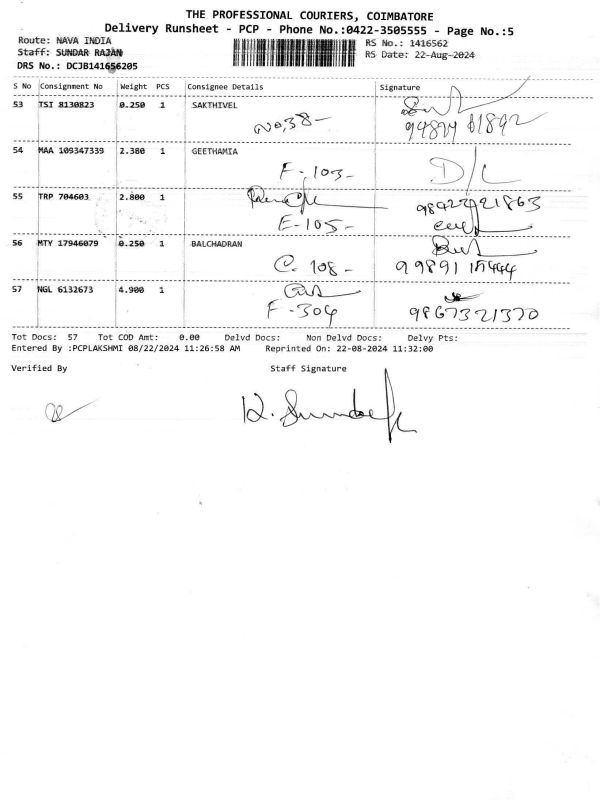 THE PROFESSIONAL COURIERS, COIMBATORE
Delivery Runsheet - PCP - Phone No.:0422-3505555 - Page No.:5
Route: NAVA INDIA
RS No.: 1416562
Staff: SUNDAR RAJAN
RS Date: 22-Aug-2024
DRS No.: DCJB141656205
S No Consignment No Weight PCS Consignee Details Signature
53 TSI 8130823 0.250 1 SAKTHIVEL
No,38-
54 MAA 109347339 2.380 1 GEETHAMIA
F-103- D/L
55 TRP 704603 2.800 1
E-105-
56 MTY 17946079 0.250 1 BALCHADRAN
C. 108-
57 NGL 6132673 4.900 1
F-304 9867321370
Tot Docs: 57 Tot COD Amt: 0.00 Delvd Docs: Non Delvd Docs: Delvy Pts:
Entered By :PCPLAKSHMI 08/22/2024 11:26:58 AM Reprinted On: 22-08-2024 11:32:00
Verified By Staff Signature